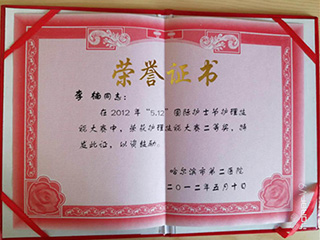 荣誉证书
李楠同志:
在2012年“5.12”国际护士节护理技
能大赛中,荣获护理技能大赛二等奖,特
发此证,以资鼓励。
哈尔滨市第二医院
二〇一二年五月十日